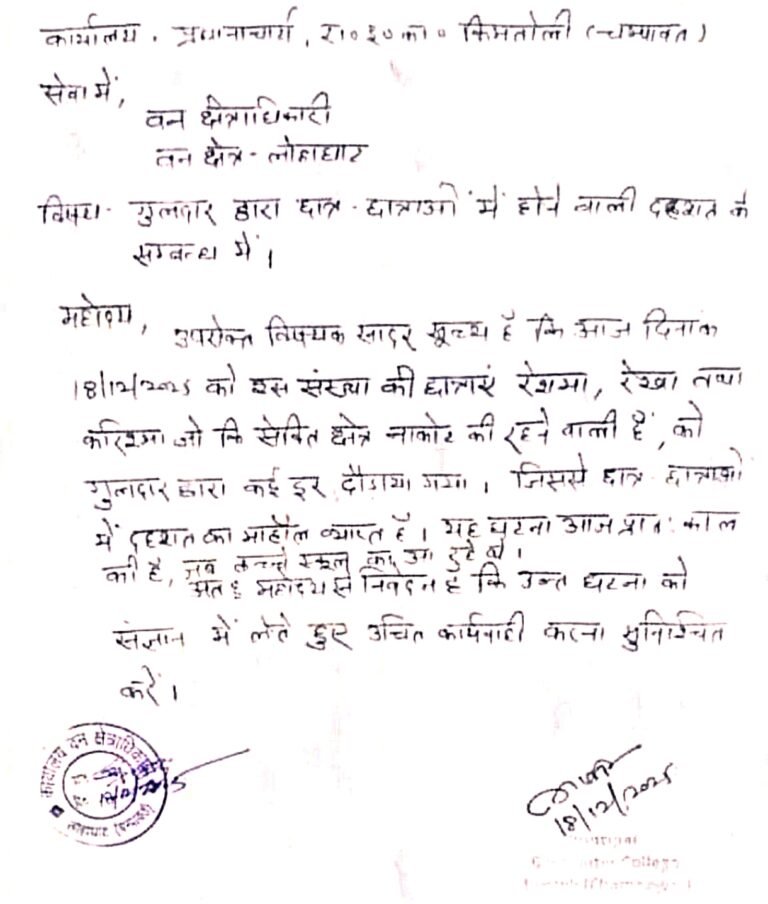 कार्यालय . प्रधानाचार्य, रा०इ०का० किमतोली (चम्पावत)
सेवा में,
वन क्षेत्राधिकारी
वन क्षेत्र - लोहाघाट
विषय - गुलदार द्वारा छात्र - छात्राओं में होने वाली दहशत के
सम्बन्ध में ।
महोदय,
उपरोक्त विषयक सादर सूच्य है कि आज दिनांक
18/12/2025 को इस संस्था की छात्राएं रेशमा, रेखा तथा
करिश्मा जो कि सेवित क्षेत्र नाकोट की रहने वाली हैं, को
गुलदार द्वारा कई दूर दौड़ाया गया । जिससे छात्र - छात्राओं
में दहशत का माहौल व्याप्त है । यह घटना आज प्रातः काल
की है, जब बच्चे स्कूल आ रहे थे ।
अतः महोदय से निवेदन है कि उक्त घटना को
संज्ञान में लेते हुए उचित कार्यवाही करना सुनिश्चित
करें ।
कार्यालय वन क्षेत्राधिकारी
लोहाघाट (चम्पावत)
18/12/2025
College